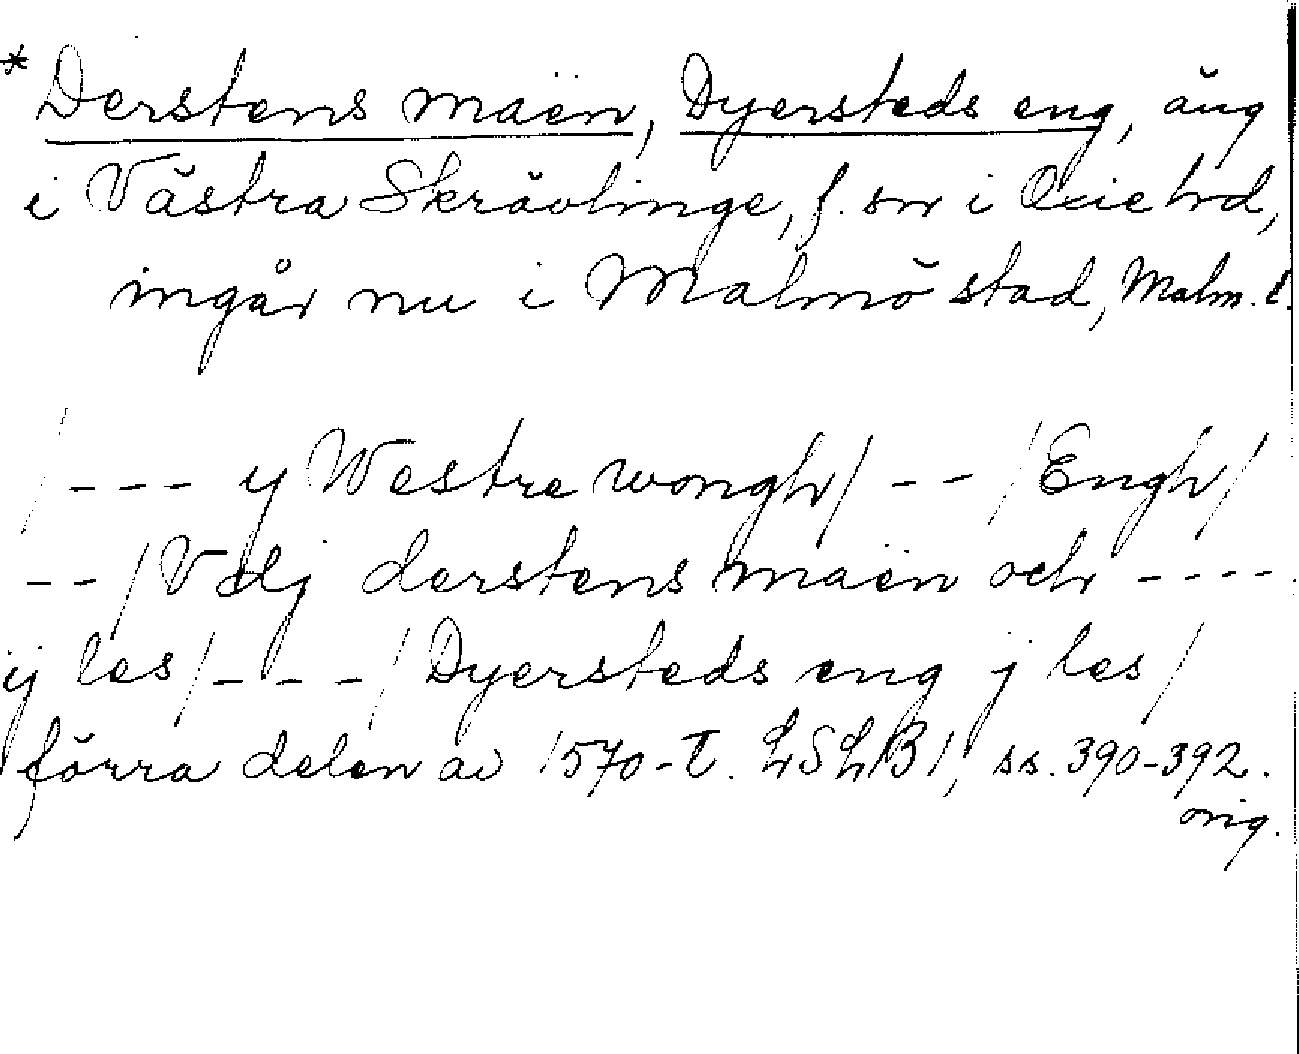 * Derstens maen, Dyersteds eng, äng
i Västra Skrävlinge, f. sn i Oxie hd,
ingår nu i Malmö stad, Malm. l.
/--- y Westre wongh/ -- /Engh/
--/ Vdj derstens maen och ----
ij les/---/ Dyersteds eng j les/
förra delen av 1570-t. LSLB1, ss. 390-392.
orig.